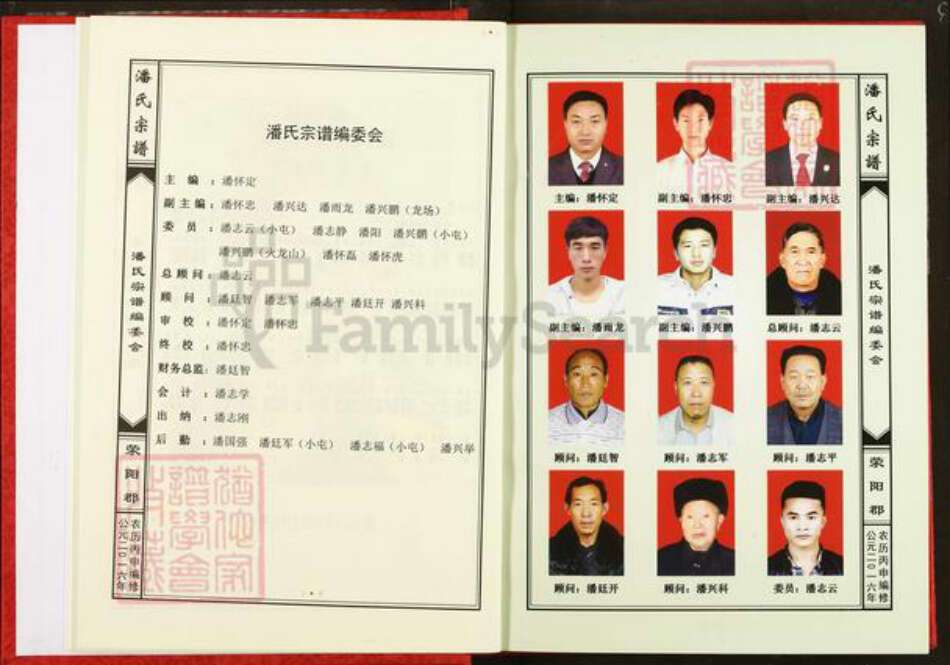 潘氏宗譜
潘氏宗谱编委会
荥阳郡
农历丙申编修
公元二〇一六年
潘氏宗谱编委会
主编：潘怀定
副主编：潘怀忠 潘兴达 潘雨龙 潘兴鹏（龙场）
委员：潘志云（小屯） 潘志静 潘阳 潘兴鹏（小屯）
潘兴鹏（火龙山） 潘怀磊 潘怀虎
总顾问：潘志云
顾问：潘廷智 潘志军 潘志平 潘廷开 潘兴科
审校：潘怀定 潘怀忠
终校：潘怀忠
财务总监：潘廷智
会计：潘志学
出纳：潘志刚
后勤：潘国强 潘廷军（小屯） 潘志福（小屯） 潘兴举
FamilySearch
主编：潘怀定 副主编：潘怀忠 副主编：潘兴达
副主编：潘雨龙 副主编：潘兴鹏 总顾问：潘志云
顾问：潘廷智 顾问：潘志军 顾问：潘志平
顾问：潘廷开 顾问：潘兴科 委员：潘志云
潘氏宗譜
潘氏宗谱编委会
荥阳郡
农历丙申编修
公元二〇一六年